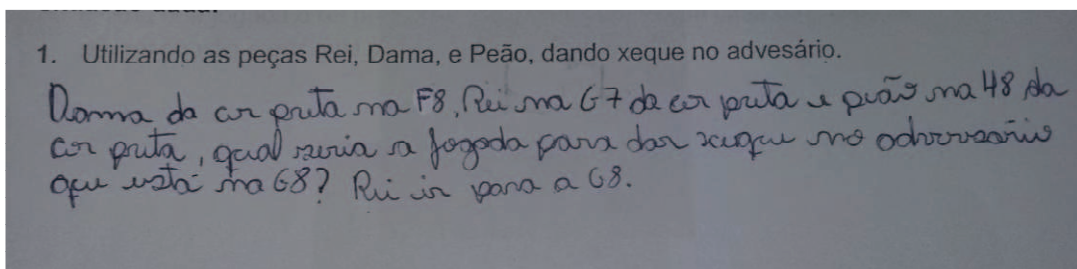 1. Utilizando as peças Rei, Dama, e Peão, dando xeque no advesário.
Dama da cor preta na F8, Rei na G7 da cor preta e peão na H8 da
cor preta, qual seria a jogada para dar xeque no adversário
que está na G8? Rei ir para a G8.